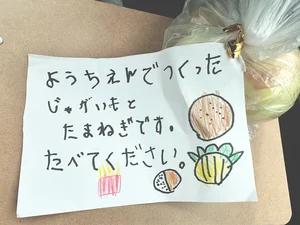 ようちえんでつくった
じゃがいもと
たまねぎです。
たべてください。